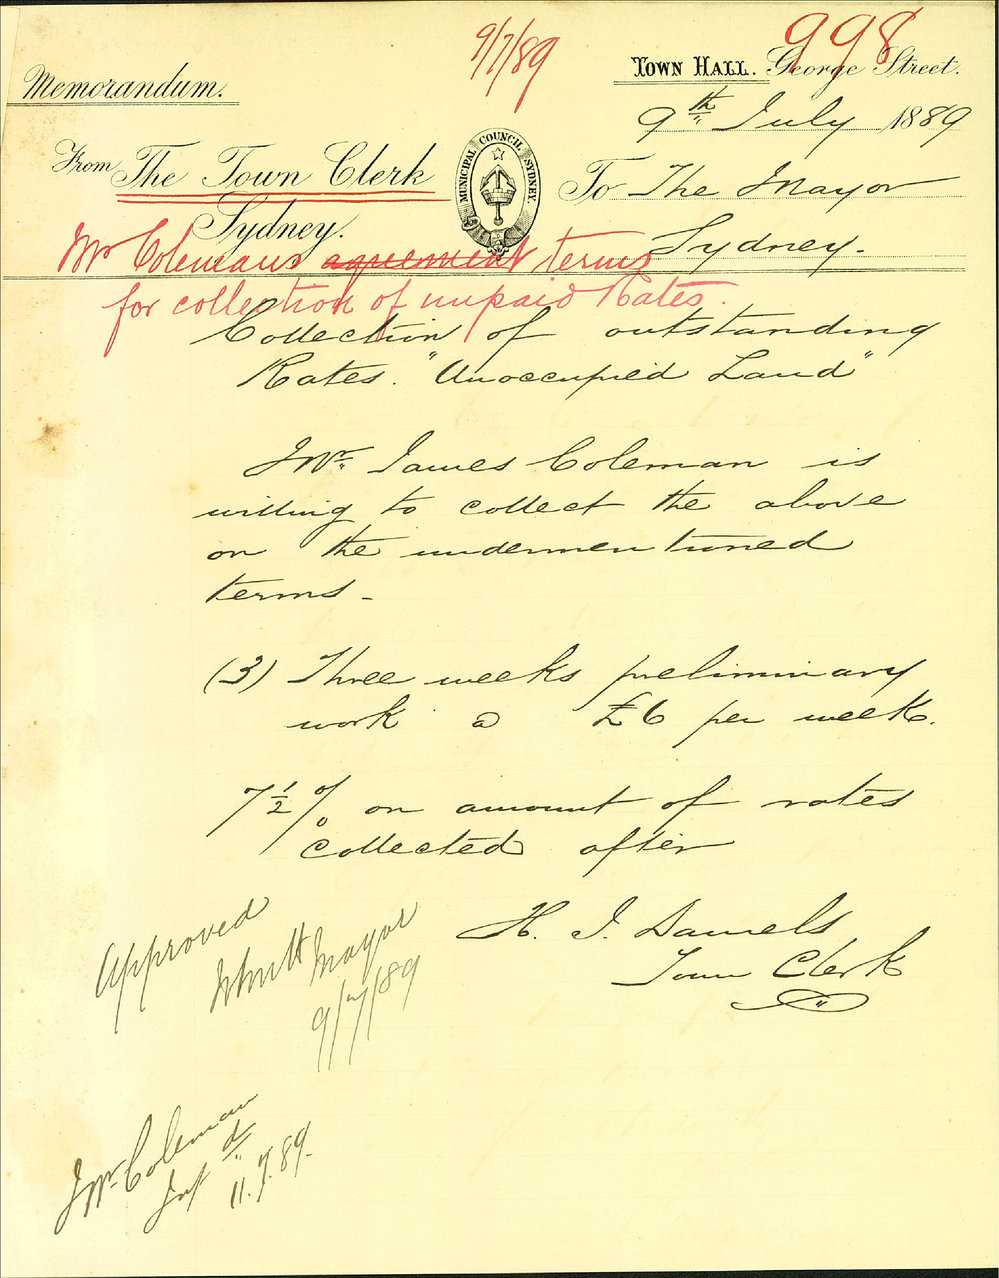 9/7/89
998
Memorandum.
TOWN HALL. George Street.
9th July 1889
From The Town Clerk
MUNICIPAL COUNCIL SYDNEY.
To The Mayor
Sydney.
Sydney.
Mr Colemans agreement terms
for collection of unpaid Rates.
Collection of outstanding
Rates. "Unoccupied Land"
Mr. James Coleman is
willing to collect the above
on the undermentioned
terms -
(3) Three weeks preliminary
work @ £6 per week.
7½% on amount of rates
collected after
H. J. Daniels
Town Clerk
Approved
Mayor
9/7/89
Mr. Coleman
Infd
11.7.89.